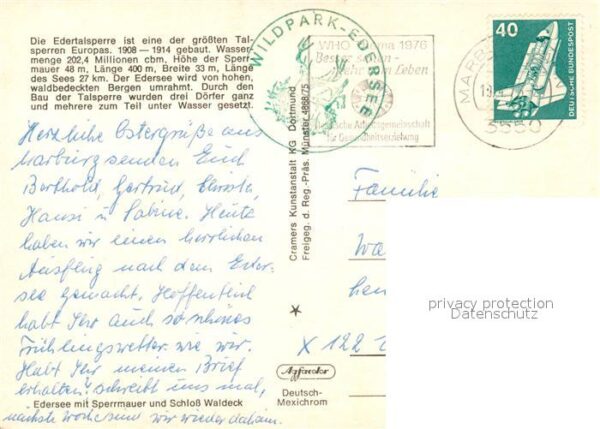 Die Edertalsperre ist eine der größten Tal-
sperren Europas. 1908 — 1914 gebaut. Wasser-
menge 202,4 Millionen cbm. Höhe der Sperr-
mauer 48 m, Länge 400 m, Breite 33 m, Länge
des Sees 27 km. Der Edersee wird von hohen,
waldbedeckten Bergen umrahmt. Durch den
Bau der Talsperre wurden drei Dörfer ganz
und mehrere zum Teil unter Wasser gesetzt.
Herzliche Ostergrüße aus
Marburg senden Euch
Berthold, Gertrud,
Hansi u. Sabine. Heute
haben wir einen herrlichen
Ausflug nach dem Eder-
see gemacht. Hoffentlich
habt Ihr auch so schönes
Frühlingswetter wie wir.
Habt Ihr meinen Brief
erhalten? Schreibt uns mal,
nächste Woche sind wir wieder daheim.
Edersee mit Sperrmauer und Schloß Waldeck
Cramers Kunstanstalt KG Dortmund
Freigeg. d. Reg.-Präs. Münster 4868/75
WILDPARK-EDERSEE
WHO 1976
Besser sehen -
mehr vom Leben
Deutsche Arbeitsgemeinschaft
für Gesundheitserziehung
40
DEUTSCHE BUNDESPOST
MARB
3550
Familie
X 122
Agfacolor
Deutsch-
Mexichrom
privacy protection
Datenschutz